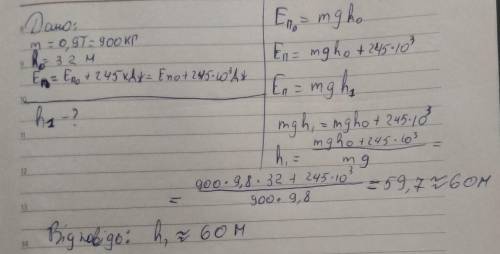 Дано:
m = 0,9т = 900 кг
h₀ = 32 м
Eп = Eп₀ + 245 кДж = Eп₀ + 245·10³ Дж
h₁ - ?
Eп₀ = mgh₀
Eп = mgh₀ + 245·10³
Eп = mgh₁
mgh₁ = mgh₀ + 245·10³
h₁ = (mgh₀ + 245·10³) / mg =
= (900·9,8·32 + 245·10³) / (900·9,8) = 59,7 ≈ 60м
Відповідь: h₁ ≈ 60 м